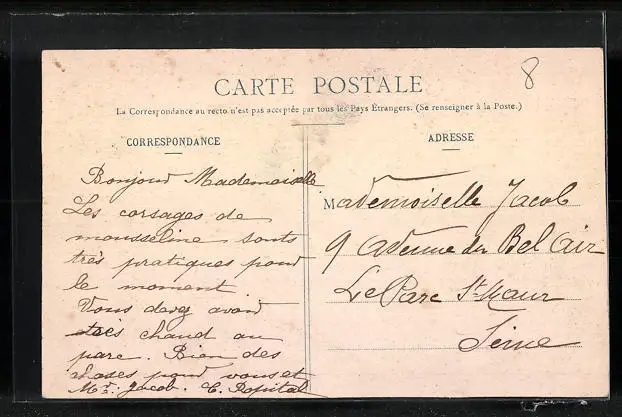 8
CARTE POSTALE
La Correspondance au recto n'est pas acceptée par tous les Pays Étrangers. (Se renseigner à la Poste.)
CORRESPONDANCE
Bonjour Mademoiselle
Les corsages de
mousseline sonts
très pratiques pour
le moment
Vous devez avoir
très chaud au
parc. Bien des
choses pour vous et
Mr. Jacob. C. Popital
ADRESSE
Mademoiselle Jacob
9 avenue du Bel Air
Le Parc St Maur
Seine